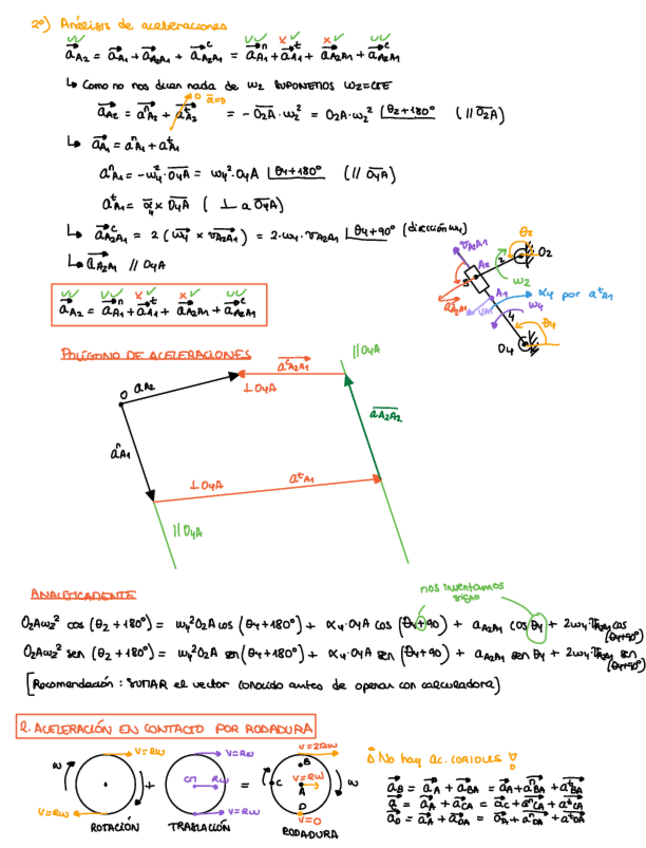 2º) Análisis de aceleraciones
a_A2 = a_A1 + a_A2A1 + a^c_A2A1 = a^n_A1 + a^t_A1 + a_A2A1 + a^c_A2A1
↳ Como no nos dicen nada de ω2 SUPONEMOS ω2=CTE
a_A2 = a^n_A2 + a^t_A2 = -O2A·ω2² = O2A·ω2² |θ2+180° (// O2A)
0 α=0
↳ a_A1 = a^n_A1 + a^t_A1
a^n_A1 = -ω4²·O4A = ω4²·O4A |θ4+180° (// O4A)
a^t_A1 = α4 x O4A ( ⊥ a O4A)
↳ a^c_A2A1 = 2 (ω4 x v_A2A1) = 2·ω4·v_A2A1 |θ4+90° (dirección ω4)
↳ a_A2A1 // O4A
a_A2 = a^n_A1 + a^t_A1 + a_A2A1 + a^c_A2A1
θ2
O2
2
A2
v_A2A1
ω2
A1
α4 por a^t_A1
ω4
4
θ4
O4
POLÍGONO DE ACELERACIONES
// O4A
a^c_A2A1
⊥ O4A
O
a_A2
a_A2A2
a^n_A1
⊥ O4A
a^t_A1
// O4A
ANALÍTICAMENTE
nos inventamos signo
O2Aω2² cos (θ2 + 180°) = ω4² O2A cos (θ4 + 180°) + α4·O4A cos (θ4+90) + a_A2A1 cos θ4 + 2ω4 v_A2A1 cos (θ4+90°)
O2Aω2² sen (θ2 + 180°) = ω4² O2A sen (θ4 + 180°) + α4·O4A sen (θ4+90) + a_A2A1 sen θ4 + 2ω4 v_A2A1 sen (θ4+90°)
[Recomendación : SUMAR el vector conocido antes de operar con calculadora)
2. ACELERACIÓN EN CONTACTO POR RODADURA
V=Rω
V=Rω
V=2Rω
¡ No hay ac. CORIOLIS !
ω
+
CM
Rω
=
B
C
V=Rω
A
D
ω
V=Rω
V=Rω
V=0
ROTACIÓN
TRASLACIÓN
RODADURA
a_B = a_A + a_BA = a_A + a^n_BA + a^t_BA
a = a_A + a_CA = a_C + a^n_CA + a^t_CA
a_D = a_A + a_DA = a_A + a^n_DA + a^t_DA